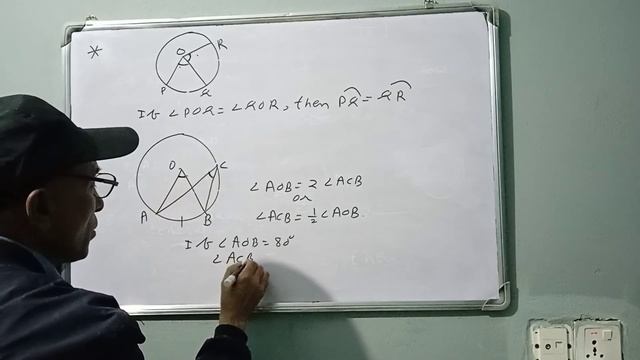 *
O
R
P
Q
If ∠POQ = ∠QOR, then P͡Q = Q͡R
O
C
A
B
∠AOB = 2 ∠ACB
or
∠ACB = 1/2 ∠AOB.
If ∠AOB = 80°
∠ACB